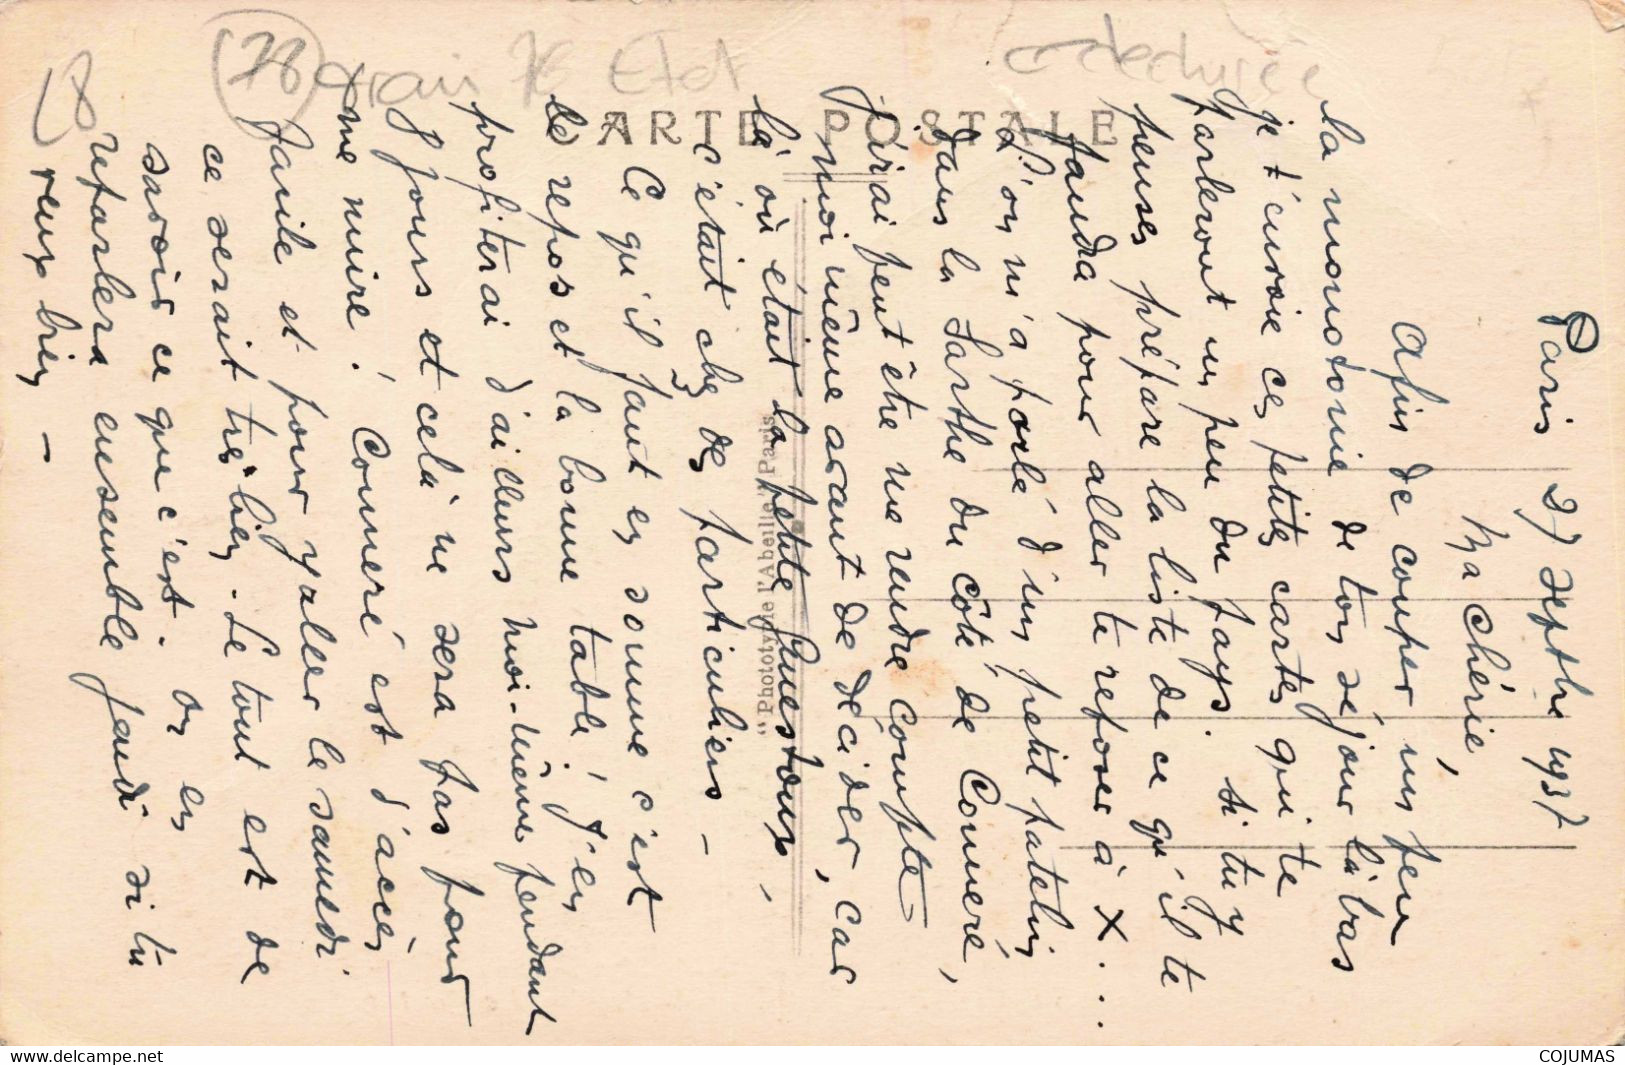 Paris 27 septbre 1937
Ma Chérie,
Afin de couper un peu
la monotonie de ton séjour là bas
je t'envoie ces petites cartes qui te
parleront un peu du pays. Si tu y
penses prépare la liste de ce qu'il te
faudra pour aller te reposer à X...
L'on m'a parlé d'un petit patelin
dans la Sarthe du côté de Conneré,
j'irai peut être me rendre compte
moi même avant de décider, car
là où était la petite
c'était chez des particuliers -
Ce qu'il faut en somme c'est
le repos et la bonne table! J'en
profiterai d'ailleurs moi-même pendant
jours et cela ne sera pas pour
me nuire! Conneré est d'accès
facile et pour y aller le samedi
ce serait très bien. Le tout est de
savoir ce que c'est. On en
reparlera ensemble jeudi si tu
veux bien -
CARTE POSTALE
"Phototypie de l'Abeille", Paris
78
train
Etat
78
COJUMAS